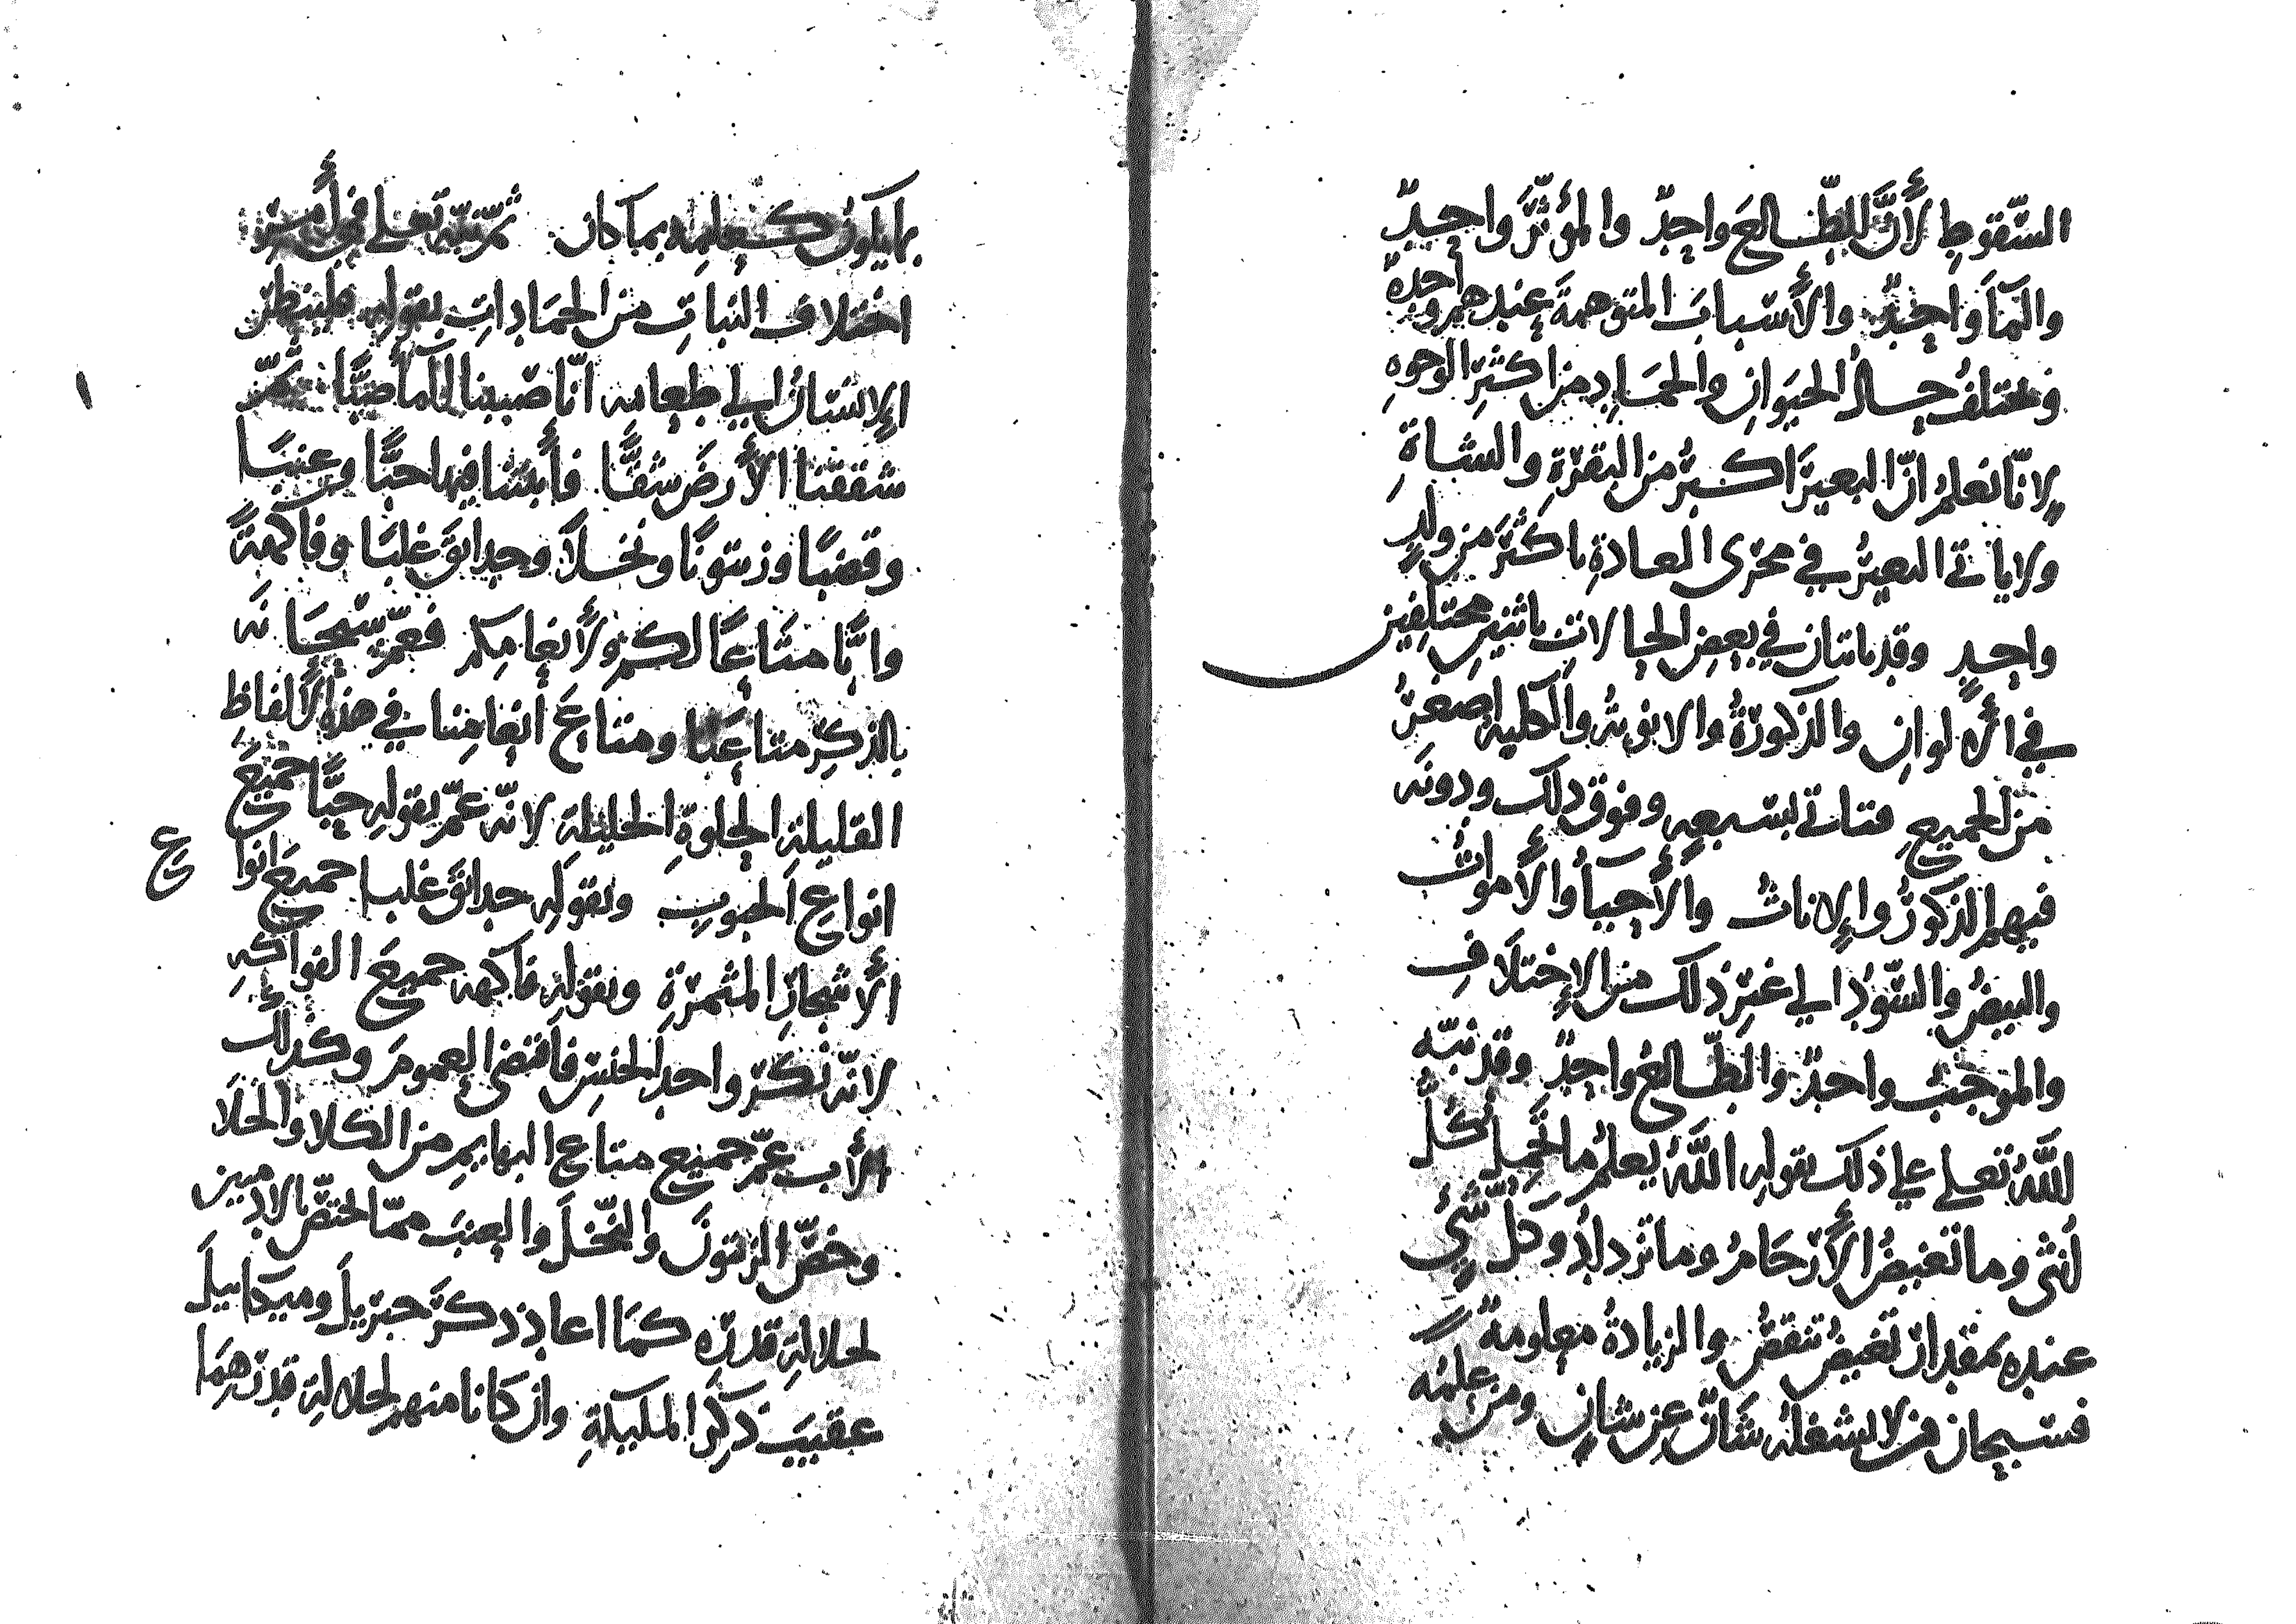 السّقوطِ لأَنَّ الطّالعَ واحِدٌ والمؤَثّرَ واحِدٌ
والمآَ واحِدٌ والأَسبابَ المتوهمةَ عندهم واحدة
وتختلفُ حالُ الحيَوانِ والجمَادِ من اكثرِ الوجوهِ
لانّا نعلمُ انّ البعيرَ اكبرُ من البقرةِ والشاةِ
ولا ياتي البعيرُ في مجرى العادةِ باكثرَ من ولدٍ
واحدٍ وقد ياتيان في بعضِ الحالاتِ باثنينِ مختلفين
في الأَلوانِ والذكورةُ والانوثةُ والكلبةُ اصغرُ
من الجميعِ فتاتي بسبعةٍ وفوق ذلك ودونَه
فيهم الذكورُ والإناثُ والأَحيآُ والأَمواتُ
والبيضُ والسّودُ الى غيرِ ذلك من الإختلافِ
والموجبُ واحدٌ والطّالعُ واحِدٌ وقد نبّه
اللَّهُ تعلى على ذلك بقولِه اللَّهُ يعلمُ ما تَحمِلُ كُلُّ
أُنثى وما تغيضُ الأَرْحَامُ وما تزدادُ وكلُّ شَيْءٍ
عنده بمقدارٍ تغيضُ تنقصُ والزيادةُ معلومةٌ
فسبحان من لا يشغلُه شَأنٌ عن شانٍ ومن علمُه
بما يكونُ كعلمِه بما كان ثمّ نبّه تعلى في
اختلافِ النباتِ من الجمَاداتِ بقولِه فلينظرِ
الإنسانُ الى طعامه انّا صَببنا المآَ صبًّا ثمّ
شققنا الأَرضَ شقًّا فأَنبتنا فيها حبًّا وعنبًا
وقضبًا وزيتونًا ونخلاً وحدايقَ غلبًا وفاكهةً
وابًّا متَاعًا لكم ولأَنعامِكم فعمّ سبحَانَه
بالذكرِ متاعَنا ومتاعَ أنعامِنا في هذه الأَلفاظِ
القليلةِ الحلوةِ الجليلةِ لانّه عمّ بقولِه حبًّا جميعَ
انواعِ الحبوبِ وبقولِه حدايقَ غلبا جميعَ انواع
الأَشجارِ المثمرةِ وبقولِه فاكهه جميعَ الفواكهِ
لانّه نكّرَ واحدَ الجنسِ فاقتضى العمومَ وكذلك
الأَب عمّ جميع متاع البهايمِ من الكلا والخلا
وخصّ الزيتونَ والنّخلَ والعنبَ ممّا يختصّ بالادميين
لجلالةِ قدرِه كمَا اعاد ذكرَ جبريلَ وميكاييلَ
عقيبَ ذكرِ المليكةِ وان كانا منهم لجلالةِ قدرِهمَا